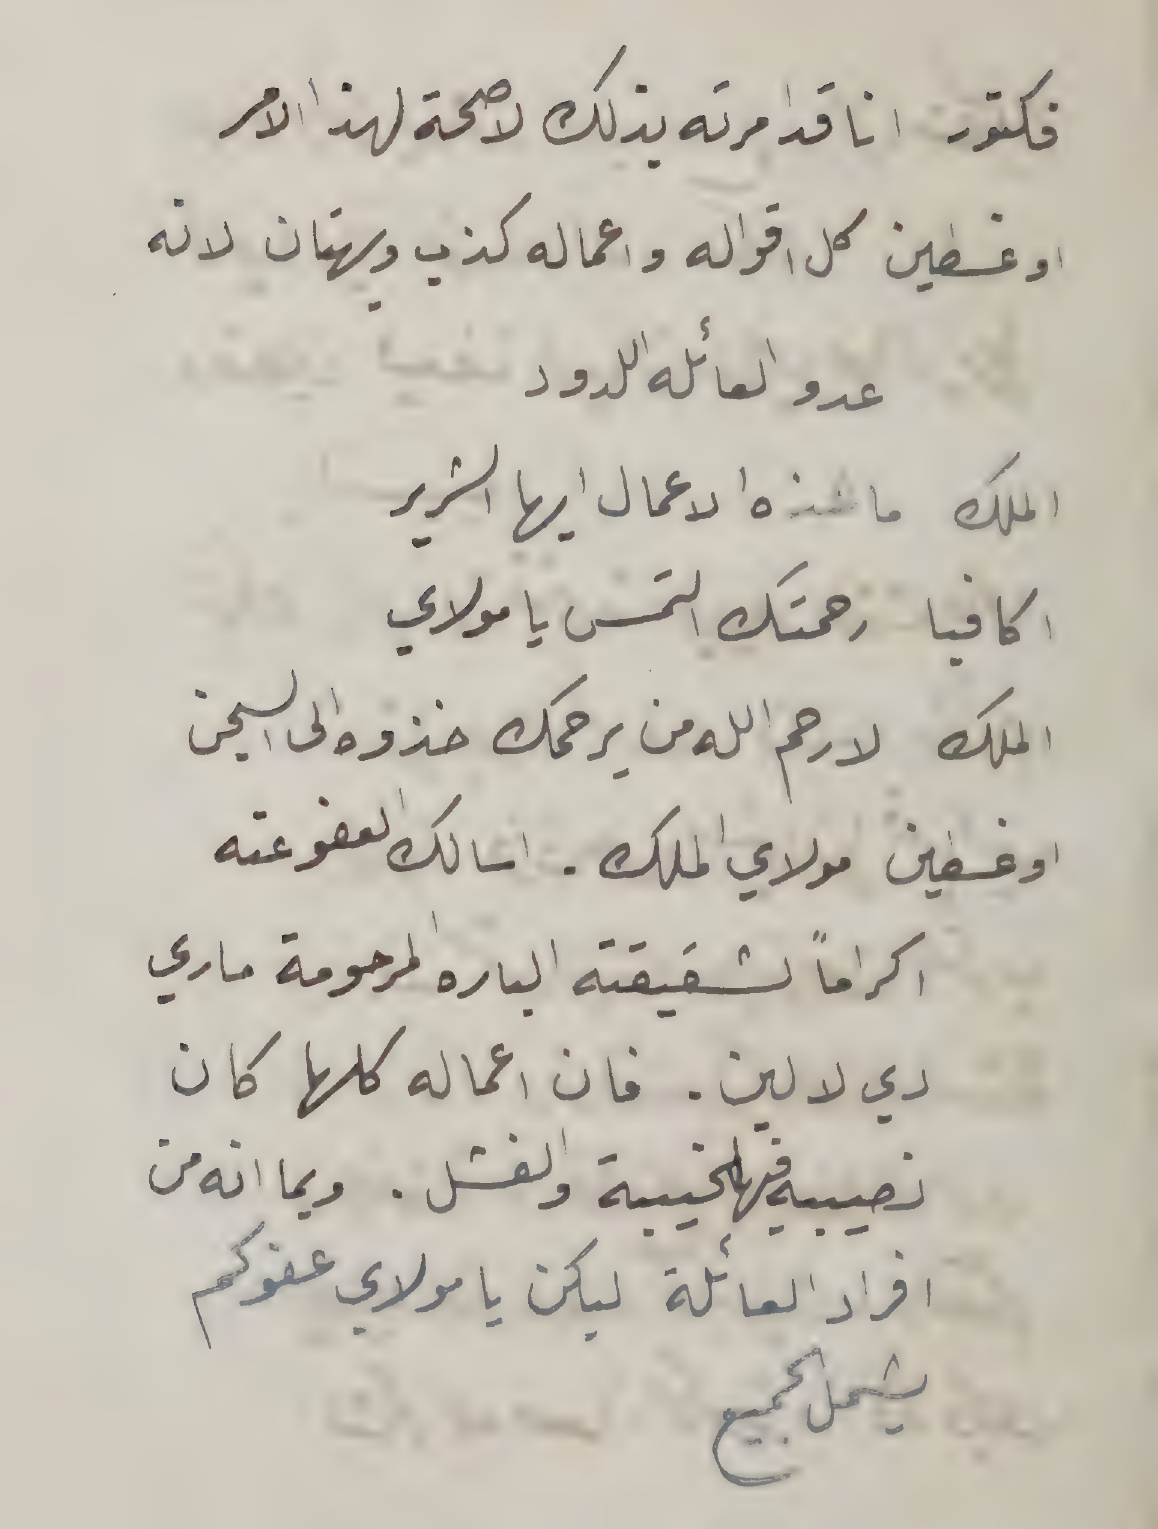 فكتور انا قد امرته بذلك لاصحة لهذا الامر
اوغسطين كل اقواله واعماله كذب وبهتان لانه
عدو العائله اللدود
الملك ما هذه الاعمال ايها الشرير
اكافيا رحمتك التمس يا مولاي
الملك لارحم الله من يرحمك خذوه الى السجن
اوغسطين مولاي الملك . اسالك العفو عنه
اكراماً لشقيقته الباره المرحومة ماري
دي لالين . فان اعماله كلها كان
نصيبه فيها الخيبة والفشل . وبما انه من
افراد العائلة ليكن يا مولاي عفوكم
يشمل الجميع